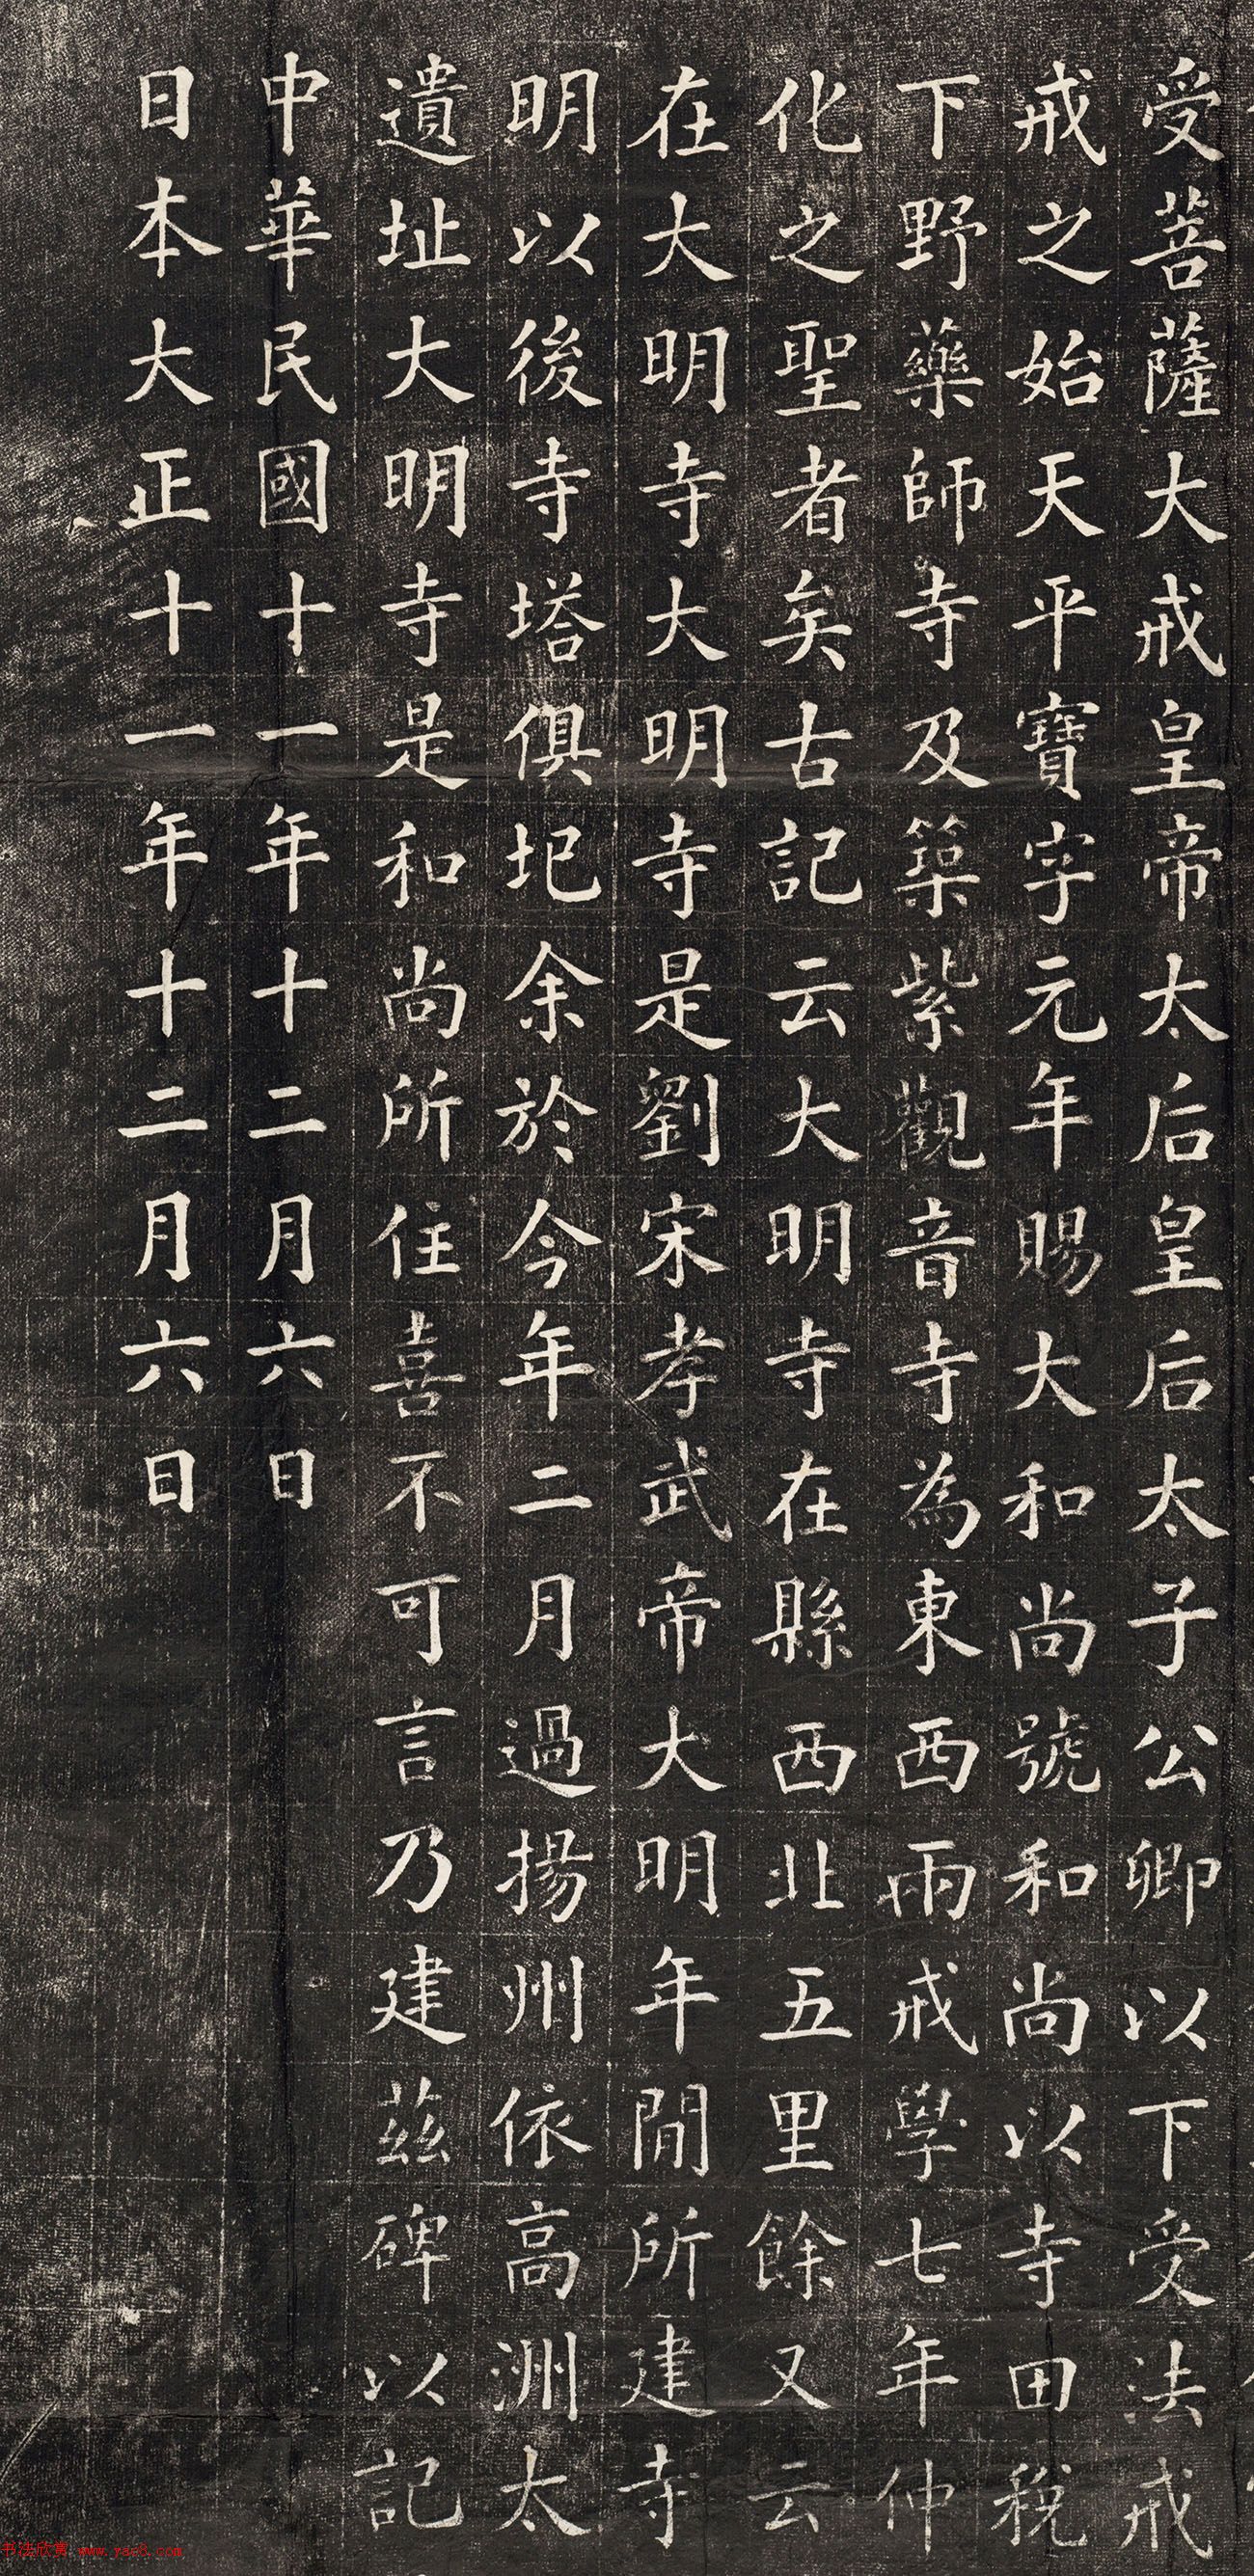 受菩薩大戒皇帝太后皇后太子公卿以下受法戒
戒之始天平寶字元年賜大和尚號和尚以寺田稅
下野藥師寺及築紫觀音寺為東西兩戒學七年仲
化之聖者矣古記云大明寺在縣西北五里餘又云
在大明寺大明寺是劉宋孝武帝大明年間所建寺
明以後寺塔俱圮余於今年二月過揚州依高洲太
遺址大明寺是和尚所住喜不可言乃建茲碑以記
中華民國十一年十二月六日
日本大正十一年十二月六日
书法欣赏 www.yac8.com